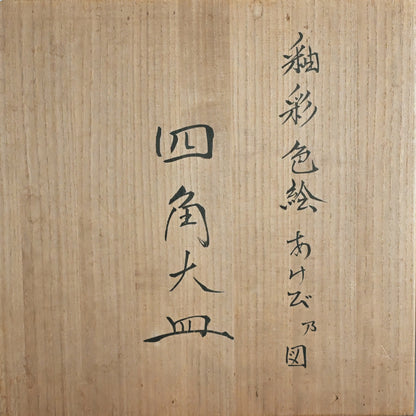 釉彩色絵あけび乃図
四角大皿